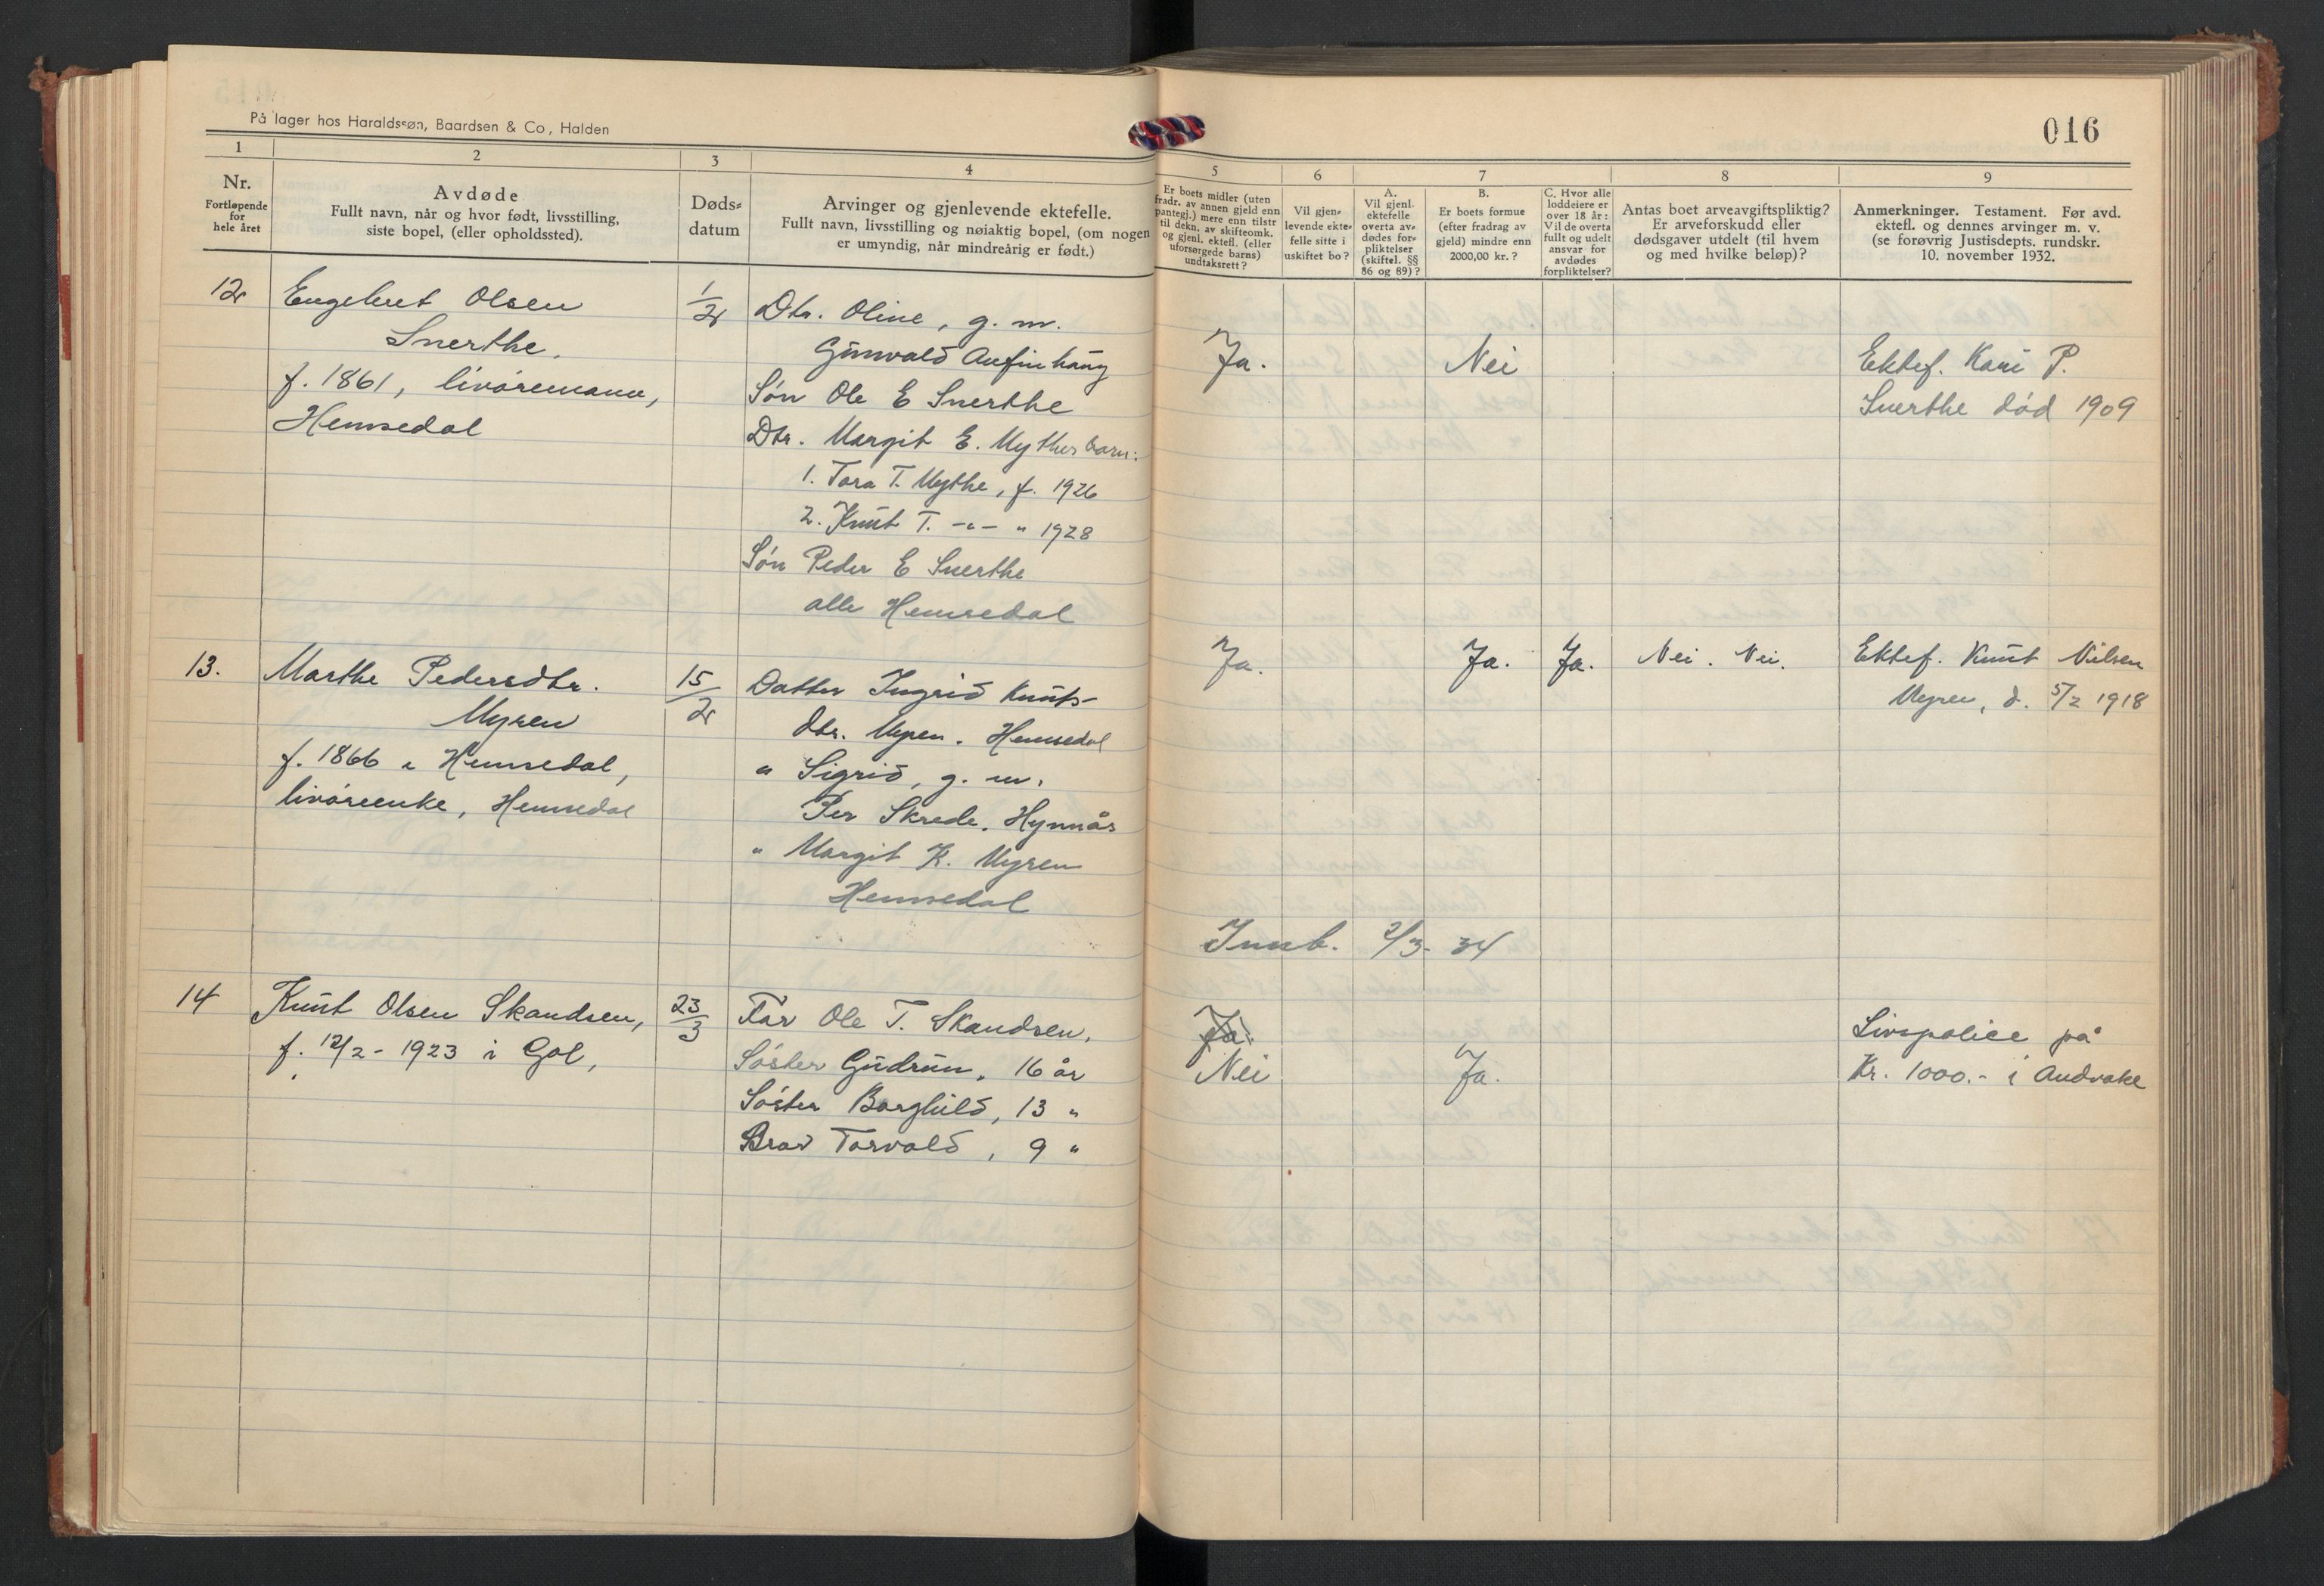 På lager hos Haraldssøn, Baardsen & Co, Halden
016
1
2
3
4
5
6
7
8
9
Nr.
Fortløpende
for
hele året
Avdøde
Fullt navn, når og hvor født, livsstilling,
siste bopel, (eller opholdssted).
Døds-
datum
Arvinger og gjenlevende ektefelle.
Fullt navn, livsstilling og nøiaktig bopel, (om nogen
er umyndig, når mindreårig er født.)
Er boets midler (uten
fradr. av annen gjeld enn
pantegj.) mere enn tilstr
til dekn. av skifteomk.
og gjenl. ektefl. (eller
uforsørgede barns)
undtaksrett?
Vil gjen-
levende ekte-
felle sitte i
uskiftet bo?
A.
Vil gjenl.
ektefelle
overta av-
dødes for-
pliktelser
(skiftel. §§
86 og 89)?
B.
Er boets formue
(efter fradrag av
gjeld) mindre enn
2000,00 kr.?
C. Hvor alle
loddeiere er
over 18 år:
Vil de overta
fullt og udelt
ansvar for
avdødes
forpliktelser?
Antas boet arveavgiftspliktig?
Er arveforskudd eller
dødsgaver utdelt (til hvem
og med hvilke beløp)?
Anmerkninger. Testament. Før avd.
ektefl. og dennes arvinger m. v.
(se forøvrig Justisdepts. rundskr.
10. november 1932.
12
Engebret Olsen
Snerthe.
f. 1861, livøremann,
Hemsedal
1/2
Dtr. Oline, g. m.
Gunvald
Søn Ole E Snerthe
Dtr. Margit E. Mythes barn:
1. Tora T. Mythe, f. 1926
2. Knut T. -"- " 1928
Søn Peder E Snerthe
alle Hemsedal
Ja.
Nei
Ektef. Kari P.
Snerthe død 1909
13.
Marthe Pedersdtr.
Myren
f. 1866 i Hemsedal,
livøreenke, Hemsedal
15/2
Datter Ingrid Knuts-
dtr. Myren. Hemsedal
" Sigrid, g. m.
Per Skrede. Hynnås
" Margit K. Myren
Hemsedal
Ja.
Ja.
Ja.
Nei. Nei.
Ektef. Knut Nilsen
Myren, d. 5/2 1918
Innb. 2/3- 34
14
Knut Olsen Skandsen,
f. 12/2 - 1923 i Gol,
23/3
Far Ole T. Skandsen.
Søster Gudrun, 16 år
Søster Borghild, 13 "
Bror Torvald, 9 "
Ja.
Nei
Ja.
Livspolice på
Kr. 1000.- i Andvake